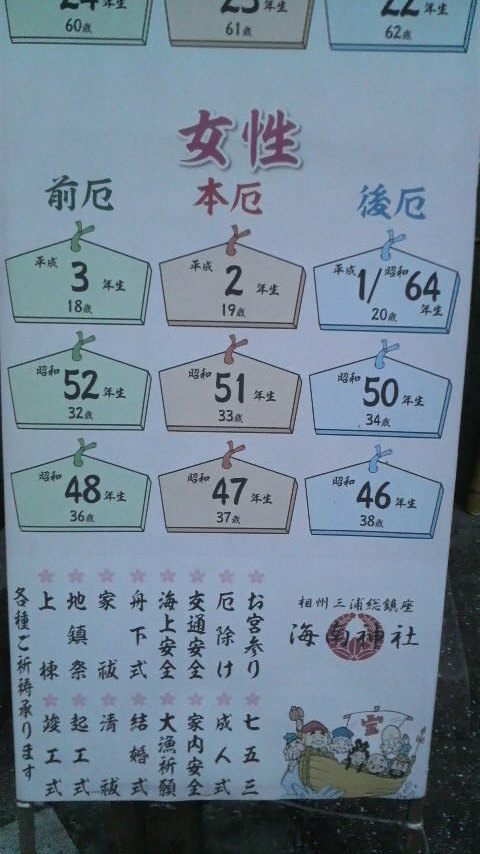 24年生 23年生 22年生
60歳 61歳 62歳
女性
前厄 本厄 後厄
平成3年生 平成2年生 平成1/昭和64年生
18歳 19歳 20歳
昭和52年生 昭和51年生 昭和50年生
32歳 33歳 34歳
昭和48年生 昭和47年生 昭和46年生
36歳 37歳 38歳
相州三浦総鎮座
海南神社
お宮参り 七五三
厄除け 成人式
交通安全 家内安全
海上安全 大漁祈願
舟下式 結婚式
家祓 清祓
地鎮祭 起工式
上棟 竣工式
各種ご祈祷承ります
宝